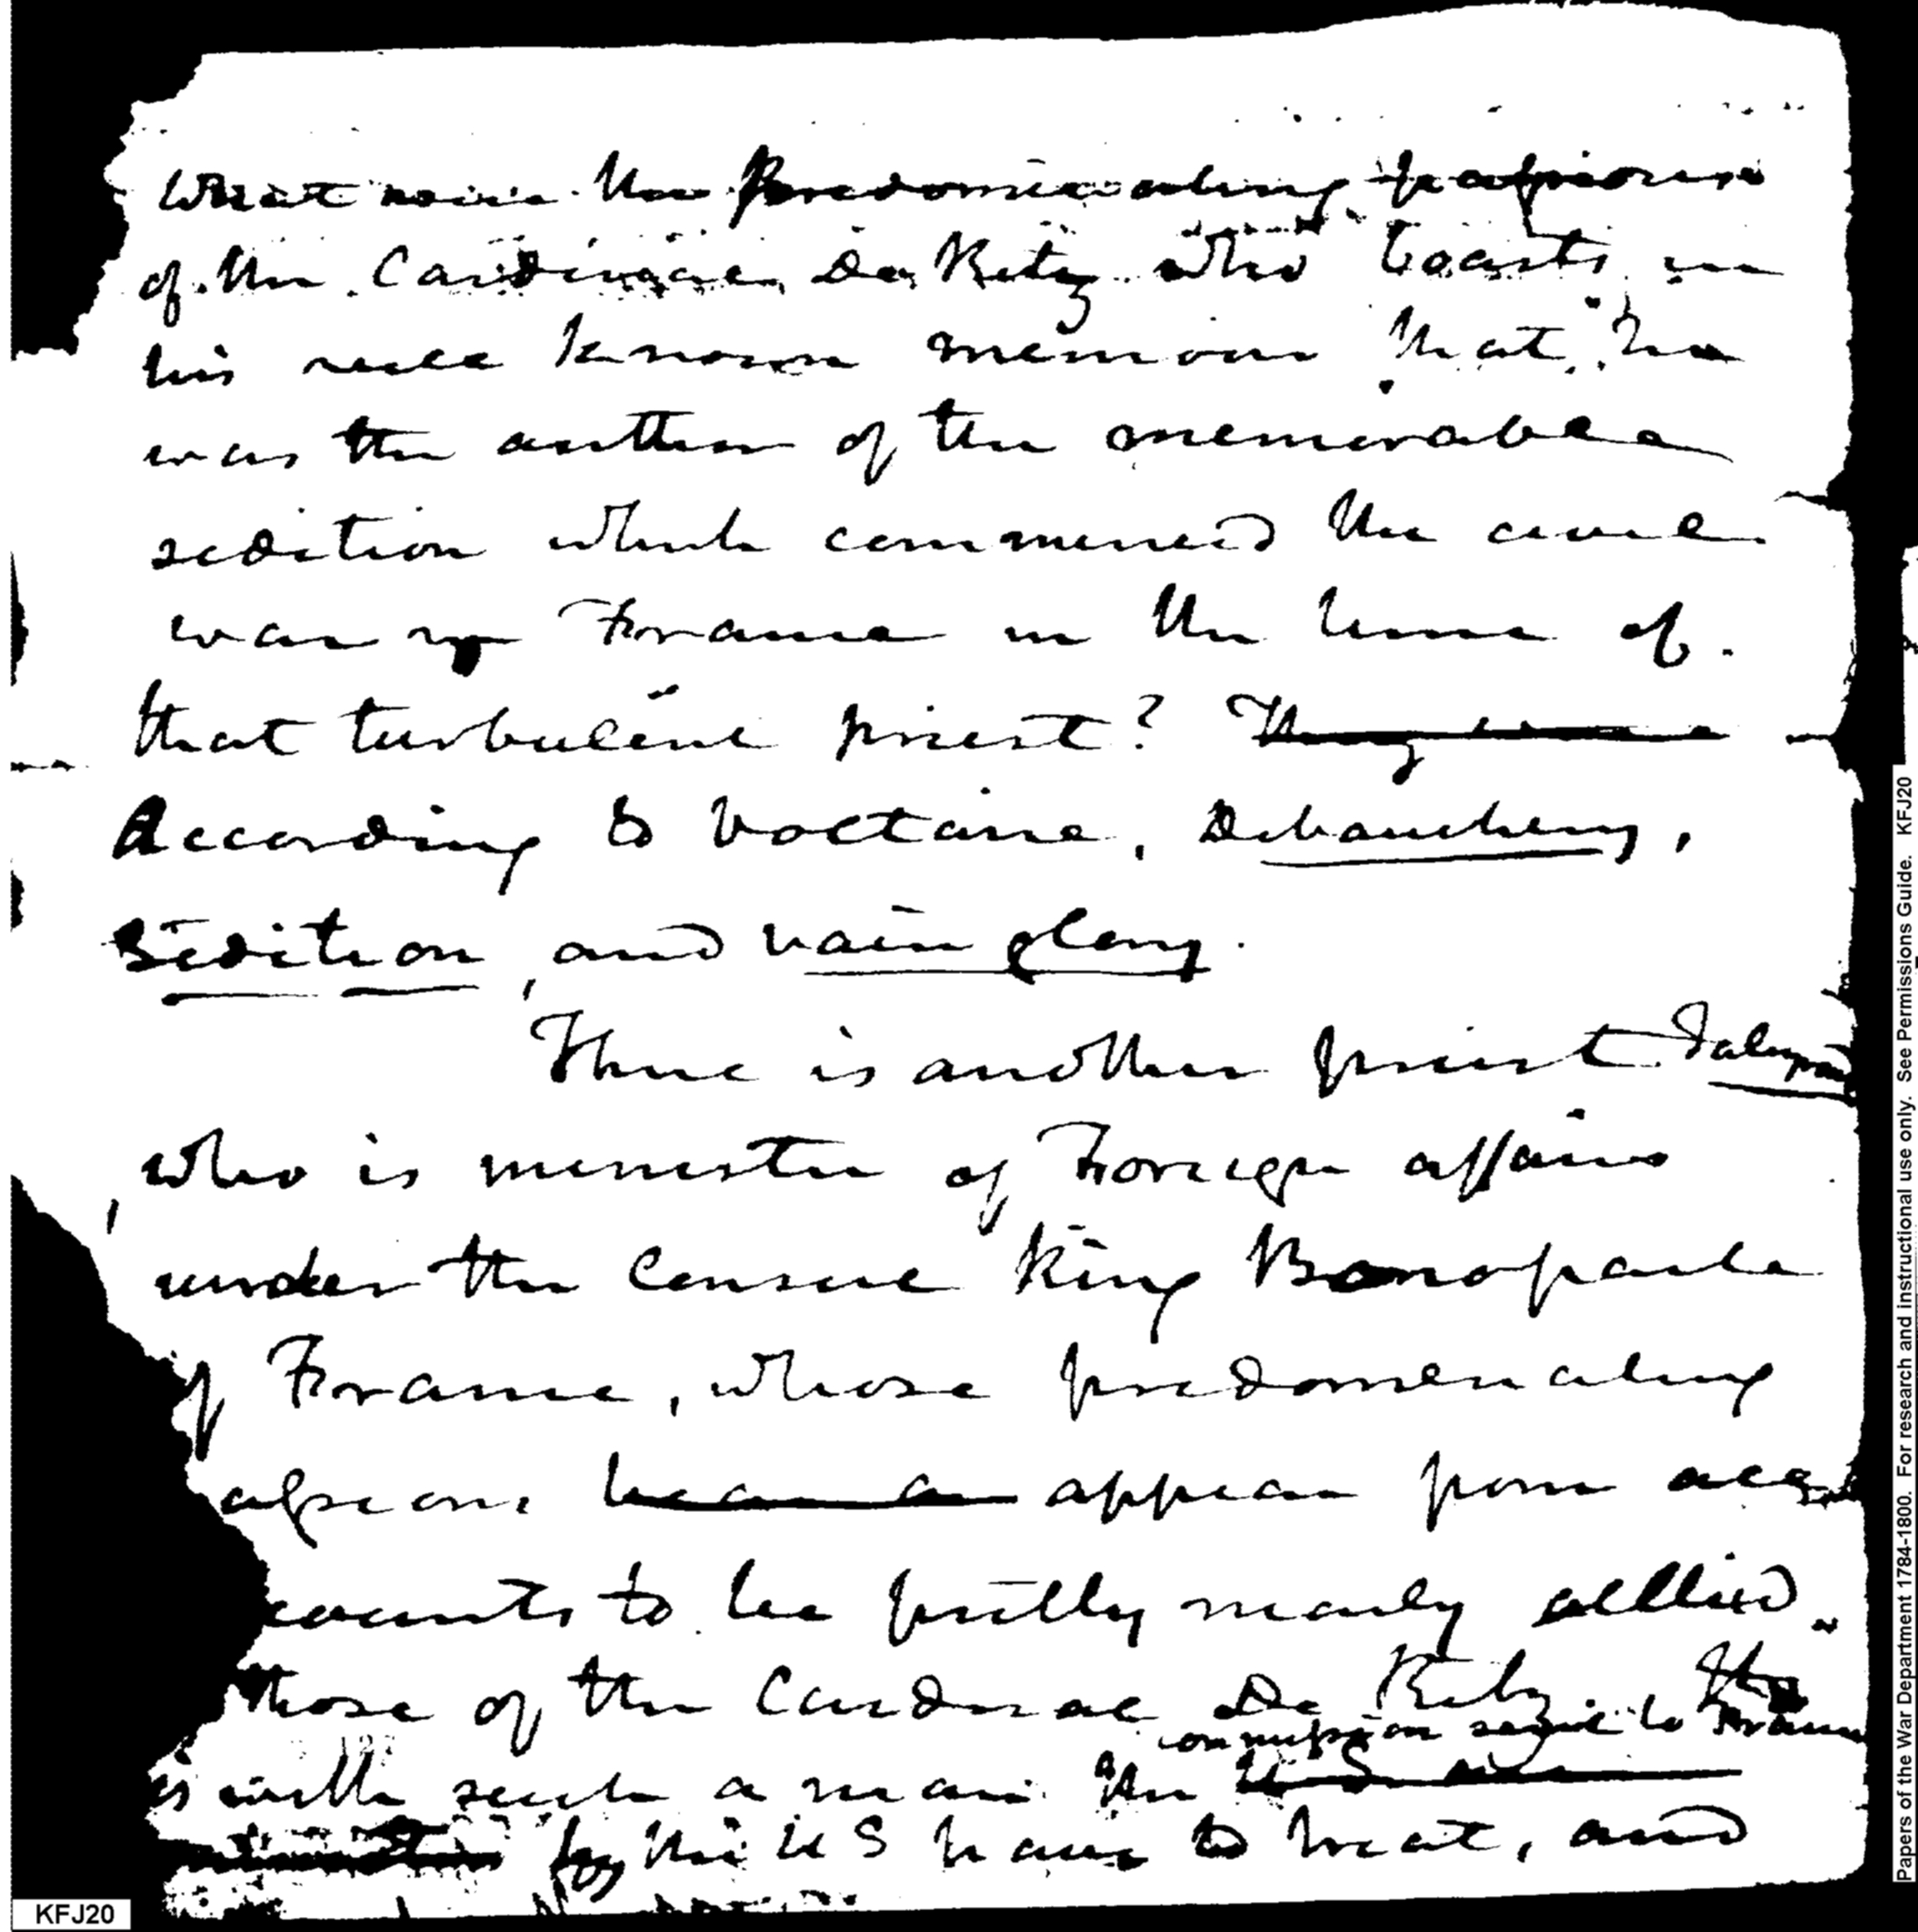 What were the predominating passions
of the Cardinal De Retz who boasts in
his well known memoir that he
was the author of the memorable
sedition which commenced the civil
war in France in the time of
that turbulent priest? They were
According to Voltaire, Debauchery,
Sedition, and vain glory.
There is another priest Taleyrand
who is minister of Foreign affairs
under the Consul King Bonoparte
of France, whose predominating
assions bear an appear from ac
counts to be pretty nearly allied
those of the Cardinal De Retz. It
commission sent to France
is with such a man the U S
by the U S have to treat, and
KFJ20
Papers of the War Department 1784-1800. For research and instructional use only. See Permissions Guide. KFJ20